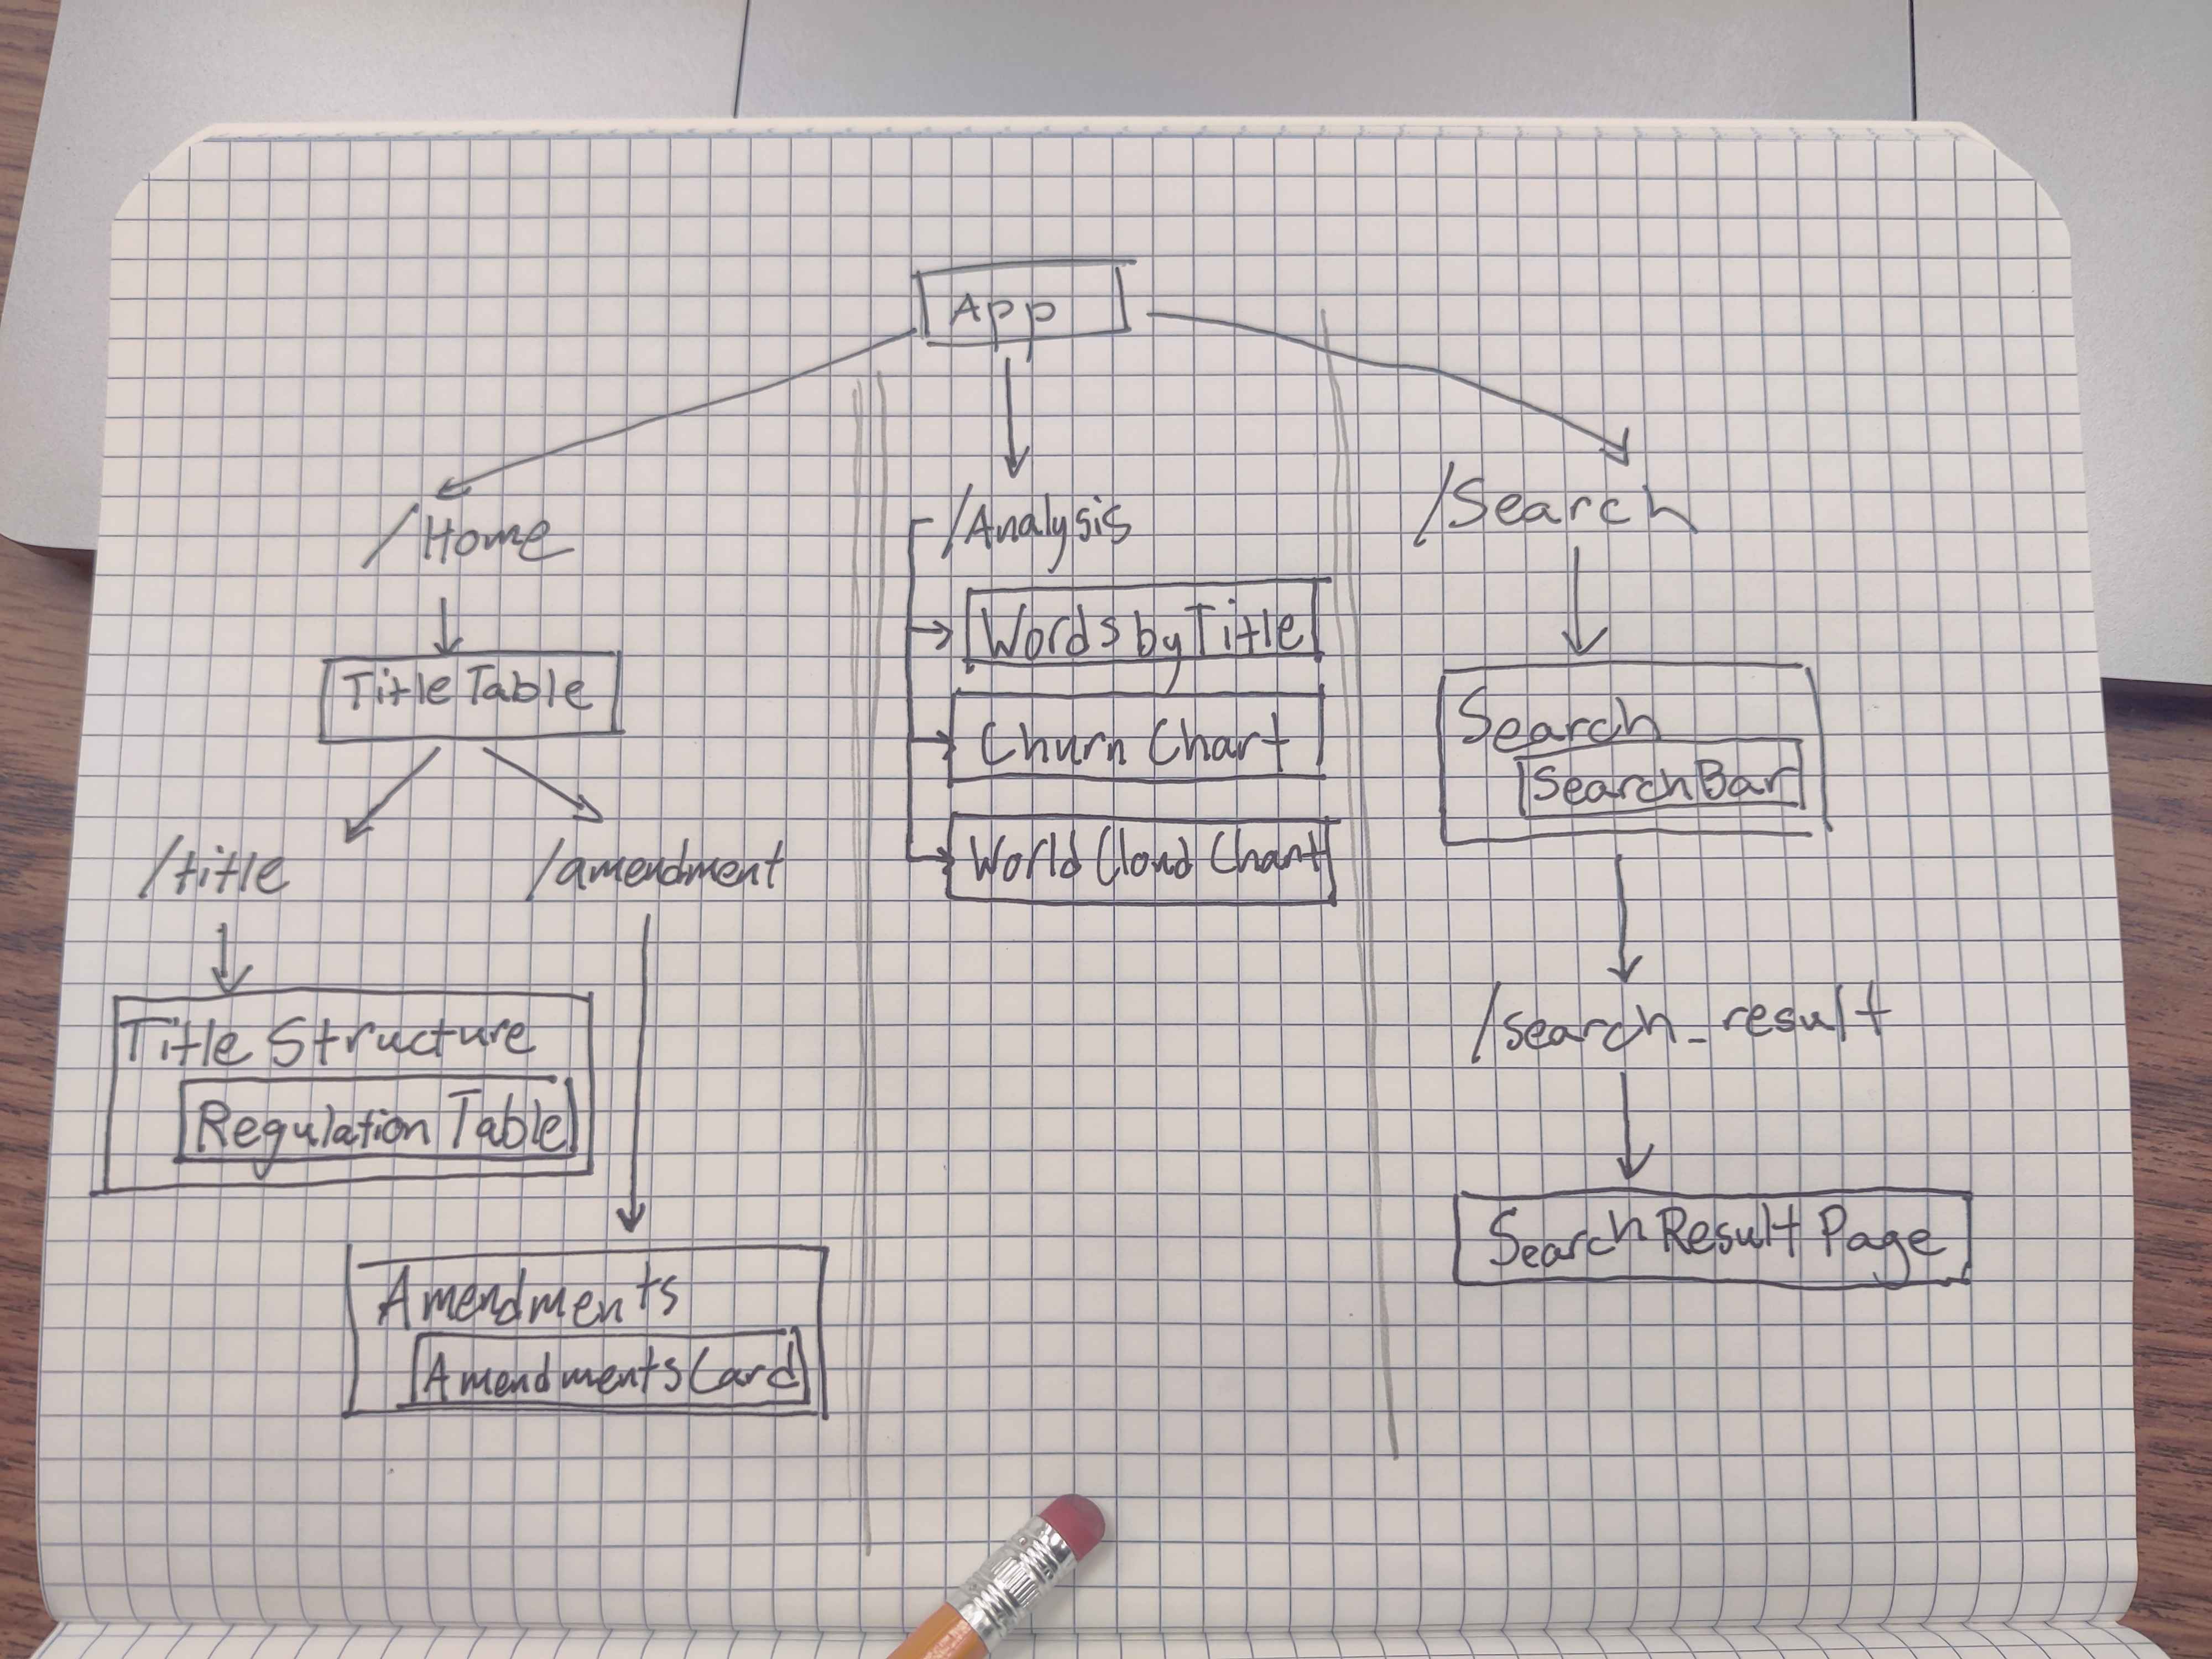 App
/Home
/Analysis
/Search
Title Table
/title
/amendment
Title Structure
Regulation Table
Amendments
Amendments Card
Words by Title
Churn Chart
World Cloud Chart
Search
Search Bar
/search_result
Search Result Page